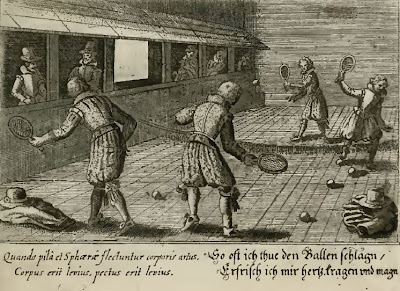 Quando pilà et Sphæræ flectuntur corporis artus.
Corpus erit levius, pectus erit levius.
So oft ich thue den Ballen schlagn/
Erfrisch ich mir hertz, kragen vnd magn